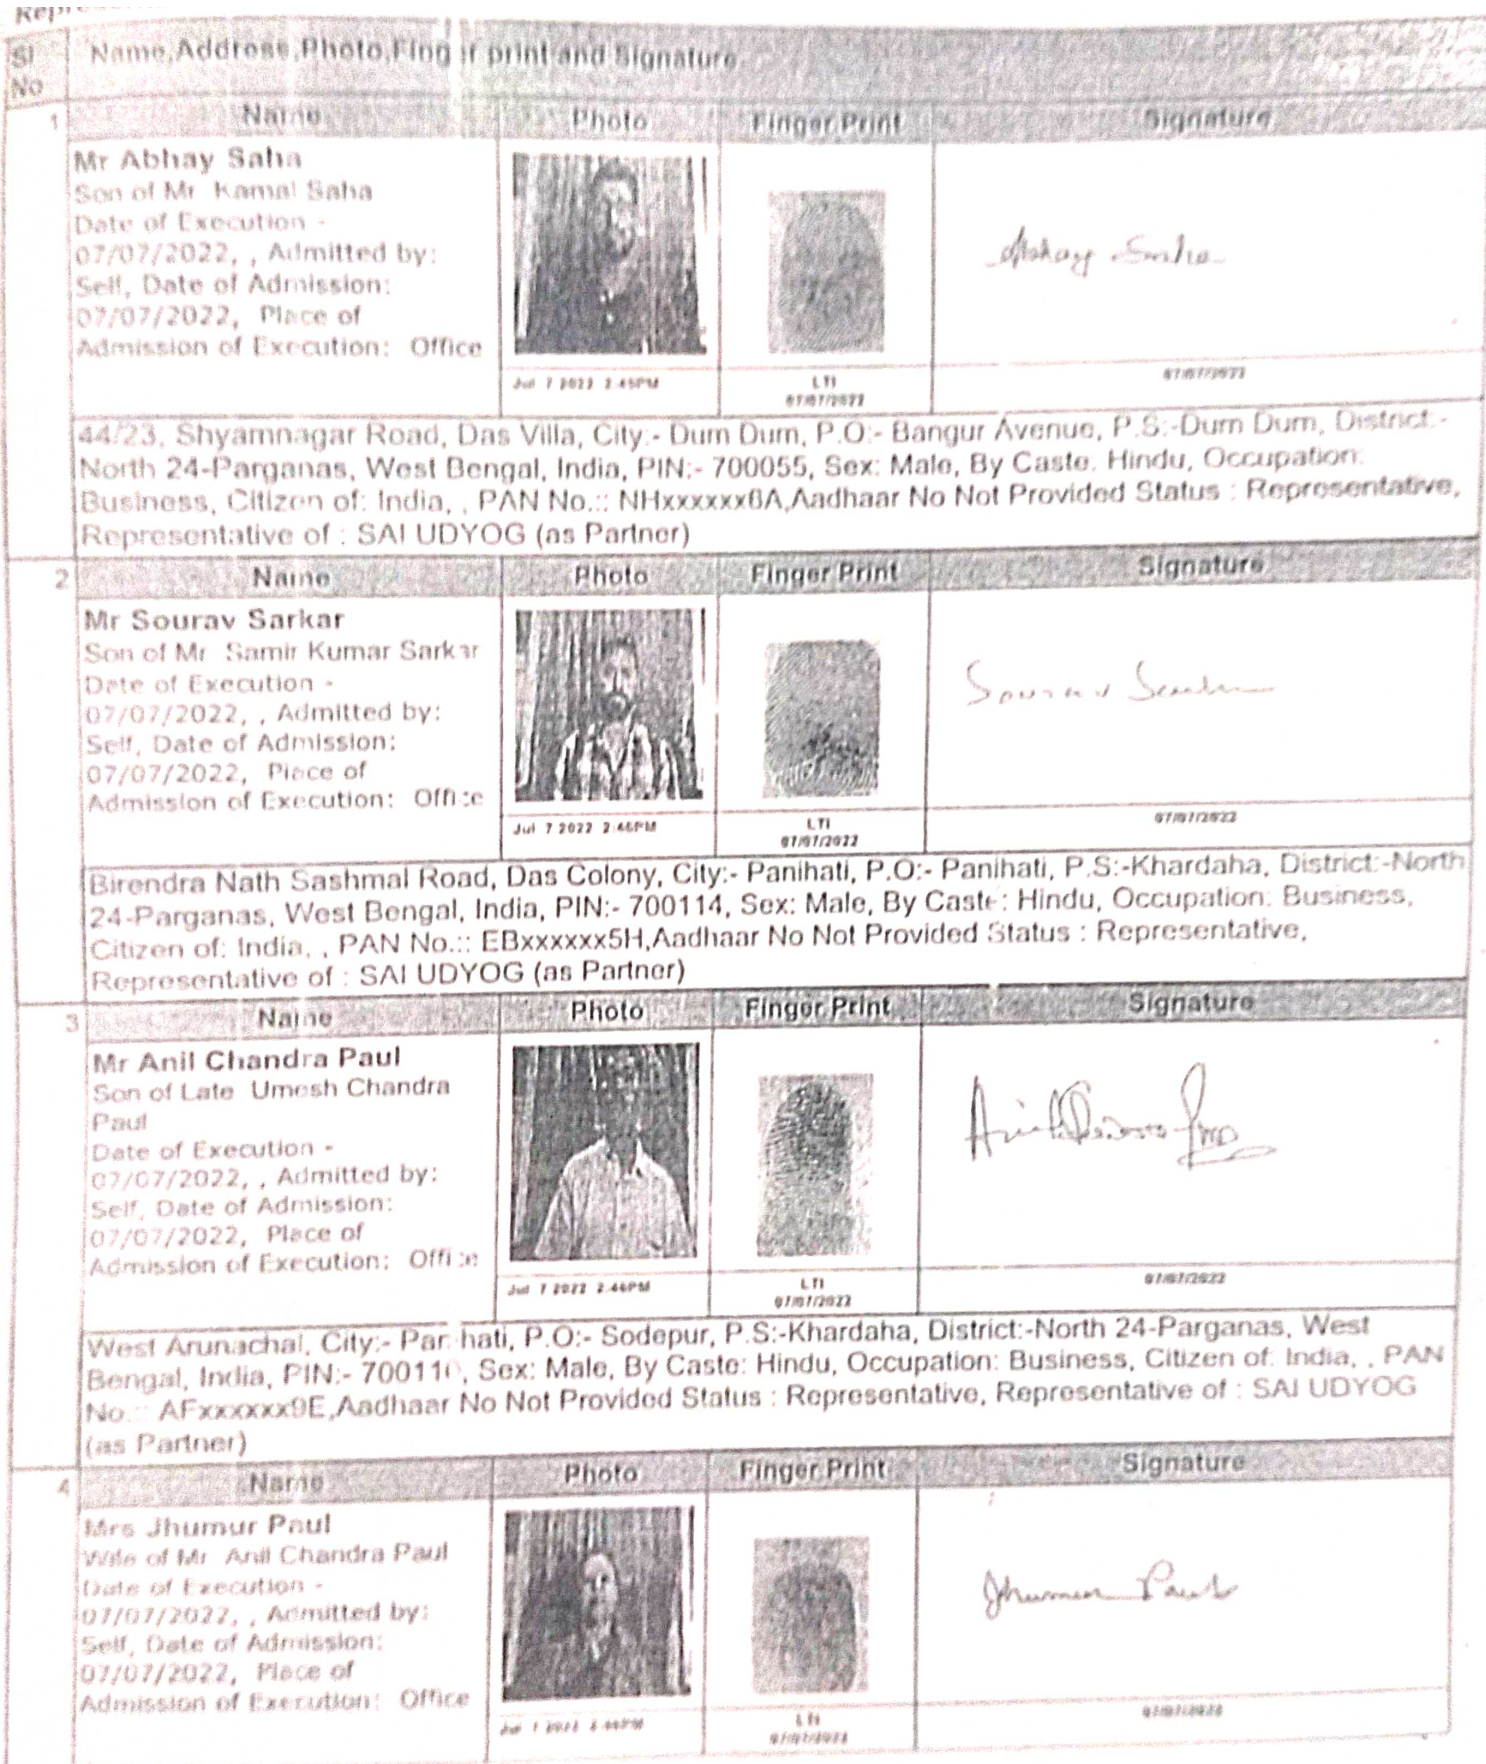 Sl No
Name,Address,Photo,Finger print and Signature
1
Name Photo Finger Print Signature
Mr Abhay Saha
Son of Mr Kamal Saha
Date of Execution -
07/07/2022, , Admitted by:
Self, Date of Admission:
07/07/2022, Place of
Admission of Execution: Office
Abhay Saha
Jul 7 2022 2:45PM LTI 07/07/2022 07/07/2022
44/23, Shyamnagar Road, Das Villa, City:- Dum Dum, P.O:- Bangur Avenue, P.S:-Dum Dum, District:-
North 24-Parganas, West Bengal, India, PIN:- 700055, Sex: Male, By Caste: Hindu, Occupation:
Business, Citizen of: India, , PAN No.:: NHxxxxxx6A,Aadhaar No Not Provided Status : Representative,
Representative of : SAI UDYOG (as Partner)
2
Name Photo Finger Print Signature
Mr Sourav Sarkar
Son of Mr Samir Kumar Sarkar
Date of Execution -
07/07/2022, , Admitted by:
Self, Date of Admission:
07/07/2022, Place of
Admission of Execution: Office
Sourav Sarkar
Jul 7 2022 2:46PM LTI 07/07/2022 07/07/2022
Birendra Nath Sashmal Road, Das Colony, City:- Panihati, P.O:- Panihati, P.S:-Khardaha, District:-North
24-Parganas, West Bengal, India, PIN:- 700114, Sex: Male, By Caste: Hindu, Occupation: Business,
Citizen of: India, , PAN No.:: EBxxxxxx5H,Aadhaar No Not Provided Status : Representative,
Representative of : SAI UDYOG (as Partner)
3
Name Photo Finger Print Signature
Mr Anil Chandra Paul
Son of Late Umesh Chandra
Paul
Date of Execution -
07/07/2022, , Admitted by:
Self, Date of Admission:
07/07/2022, Place of
Admission of Execution: Office
Jul 7 2022 2:46PM LTI 07/07/2022 07/07/2022
West Arunachal, City:- Panihati, P.O:- Sodepur, P.S:-Khardaha, District:-North 24-Parganas, West
Bengal, India, PIN:- Sex: Male, By Caste: Hindu, Occupation: Business, Citizen of: India, , PAN
No.:: AFxxxxxx9E,Aadhaar No Not Provided Status : Representative, Representative of : SAI UDYOG
(as Partner)
4
Name Photo Finger Print Signature
Mrs Jhumur Paul
Wife of Mr Anil Chandra Paul
Date of Execution -
07/07/2022, , Admitted by:
Self, Date of Admission:
07/07/2022, Place of
Admission of Execution: Office
Jhumur Paul
Jul 7 2022 LTI 07/07/2022 07/07/2022